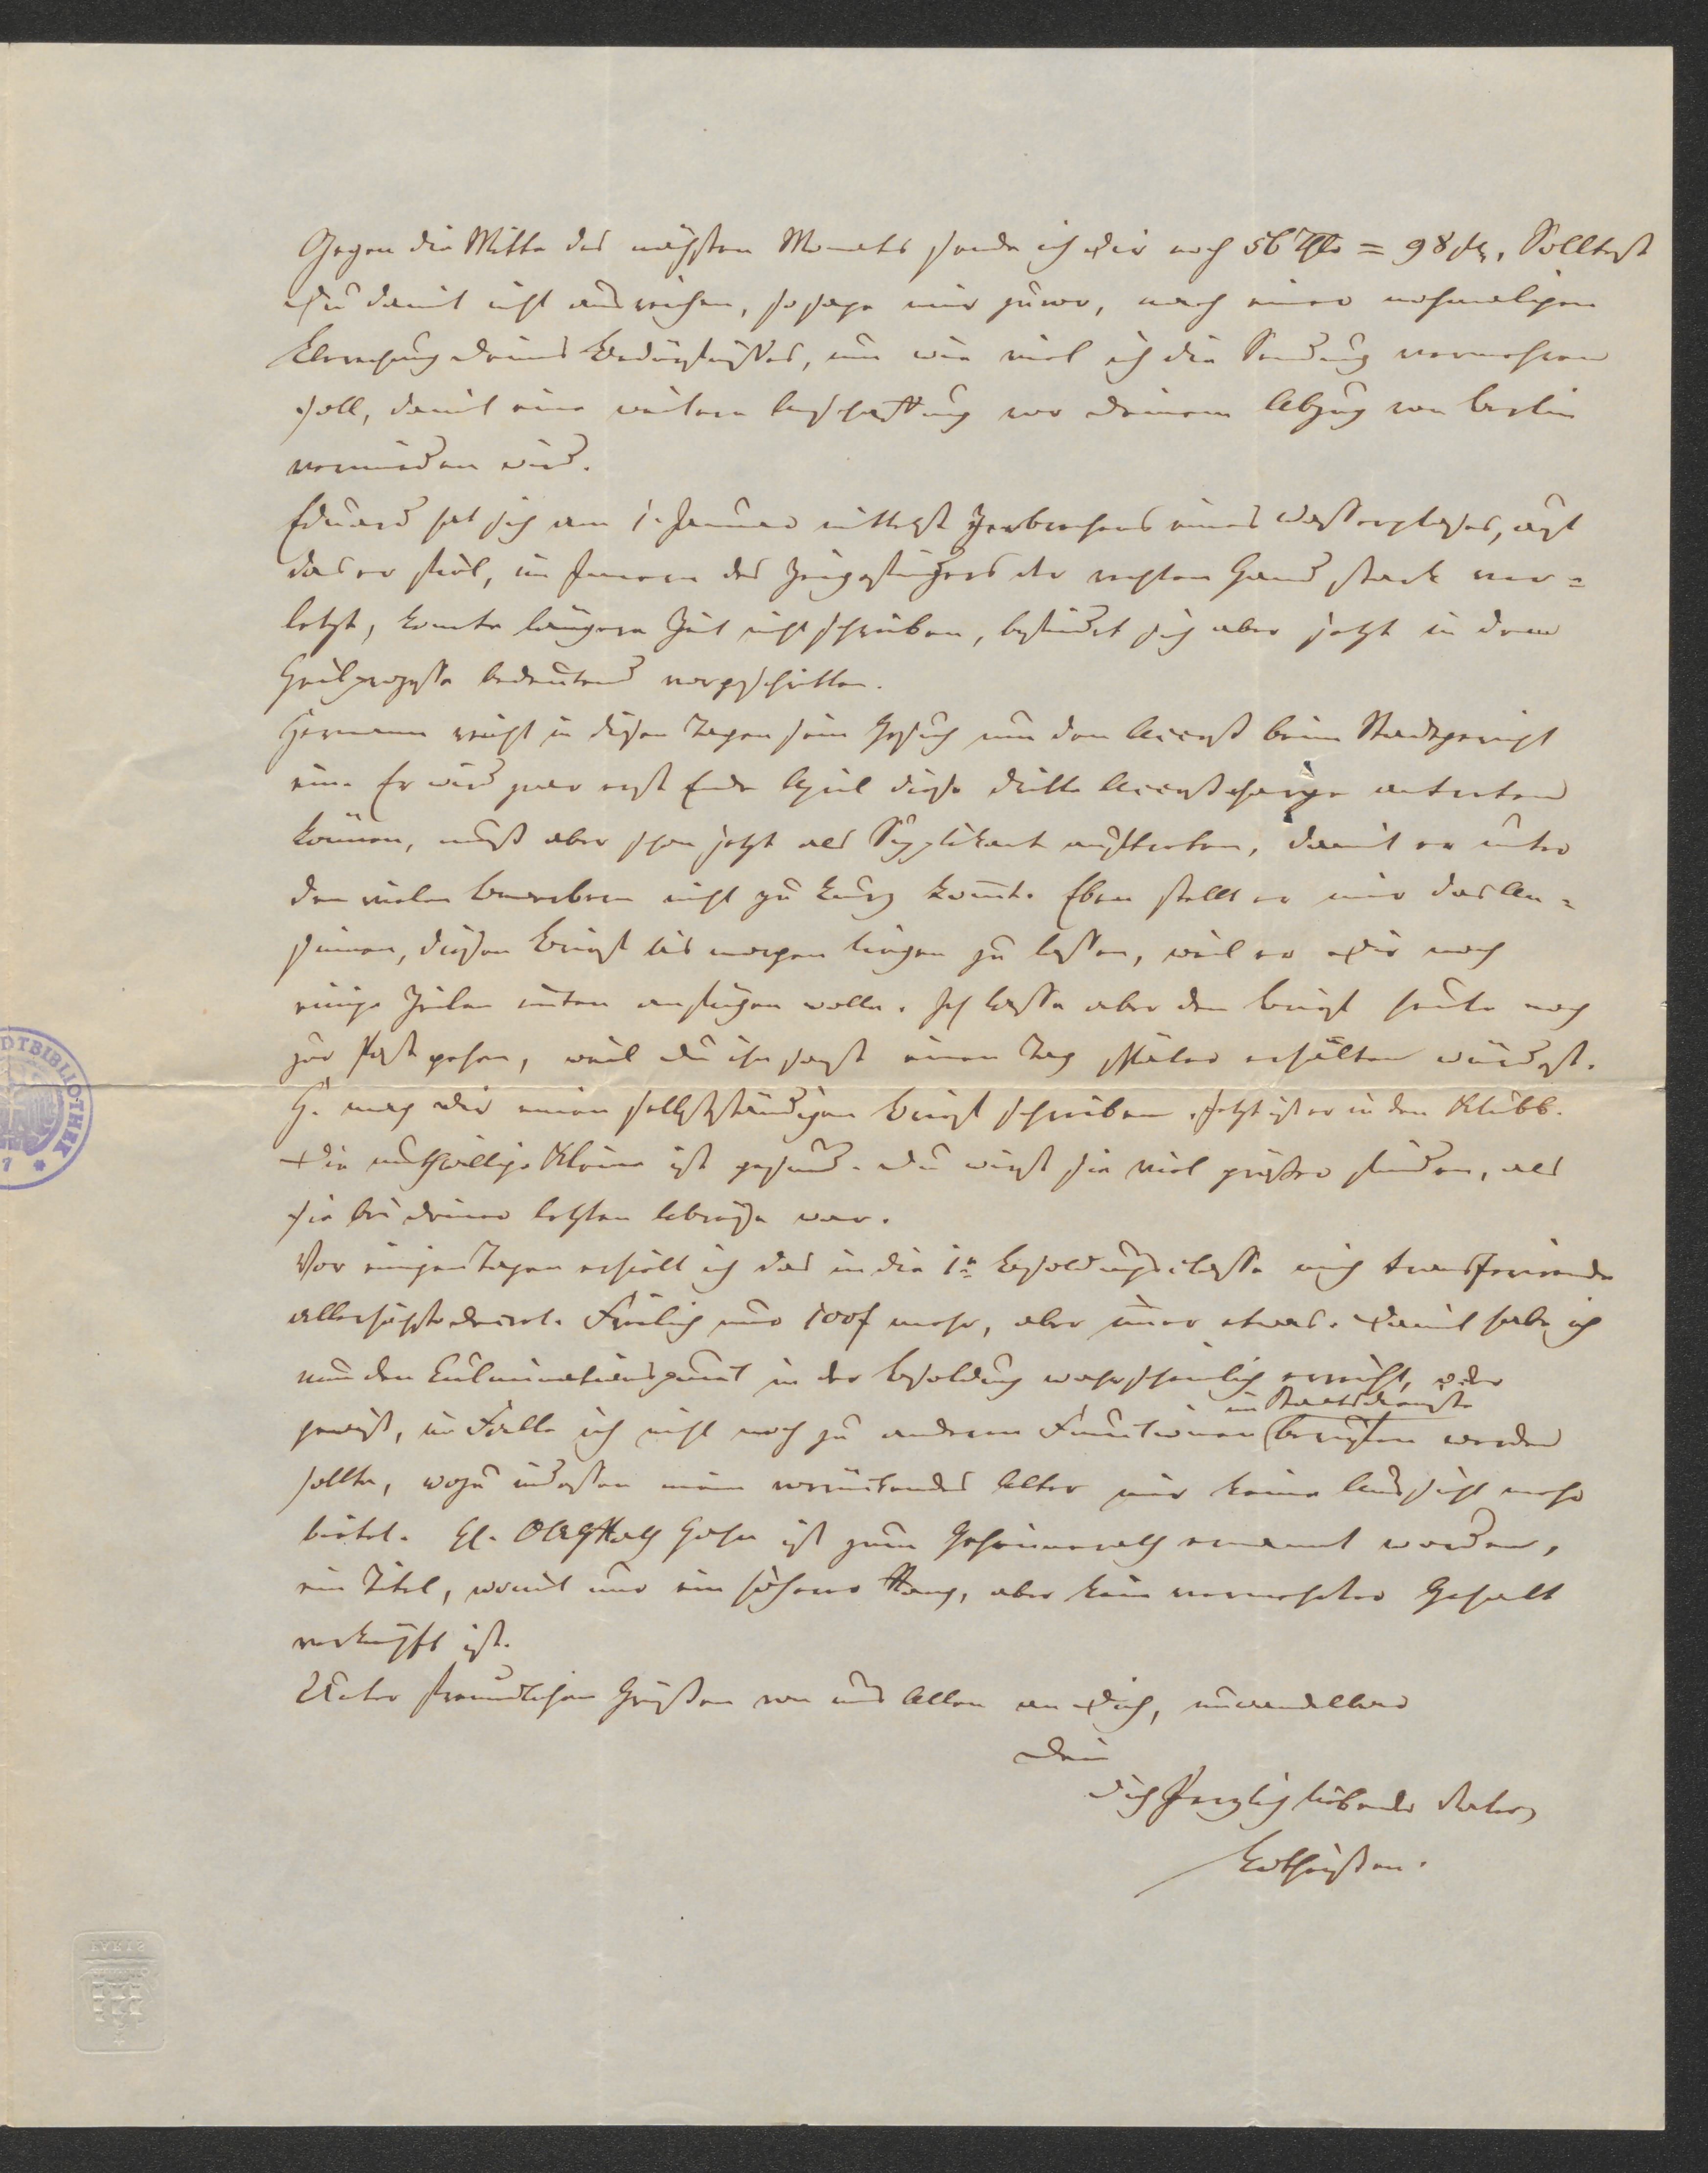 Gegen die Mitte des nächsten Monats sende ich Dir noch 56 Thlr = 98 fl. Solltest
Du damit nicht ausreichen, so sage mir zuvor, nach einer nochmaligen
Berechnung Deines Bedürfnisses, um wie viel ich die Sendung vermehren
soll, damit eine weitere Anschaffung vor Deinem Abzug von Berlin
vermieden wird.
Eduard hat sich am 1. Januar mittelst Zerbrechens eines Wasserglases, auf
das er fiel, im Innern des Zeigefingers der rechten Hand stark ver=
letzt, konnte längere Zeit nicht schreiben, befindet sich aber jetzt in dem
Heilprozesse bedeutend vorgeschritten.
Hermann reicht in diesen Tagen sein Gesuch um den Acceß beim Stadtgericht
ein. Er wird zwar erst Ende April diese dritte Acceßcharge antreten
können, muß aber schon jetzt als Supplikant auftreten, damit er unter
den vielen Bewerbern nicht zu kurz kommt. Eben stellt er mir das An=
sinnen, diesen Brief bis morgen liegen zu lassen, weil er Dir noch
einige Zeilen unten anfügen wolle. Ich lasse aber den Brief heute noch
zur Post gehen, weil Du ihn sonst einen Tag später erhalten würdest.
H. mag Dir einen selbstständigen Brief schreiben. Jetzt ist er in den Klubb.
Die muthwillige Kleine ist gesund. Du wirst sie viel größer finden, als
sie bei Deiner letzten Abreise war.
Vor einigen Tagen erhielt ich das in die 1e Besoldungsclasse mich transferirende
allerhöchste Decret. Freilich nur 100 f mehr, aber immer etwas. Damit habe ich
nun den Culminationspunct in der Besoldung wahrscheinlich erreicht, oder
gewiß, im Falle ich nicht noch zu anderen Functionen im Staatsdienste berufen werden
sollte, wozu indessen mein vorrückendes Alter mir keine Aussicht mehr
bietet. H. OAGRath Hohn ist zum Geheimerath ernannt worden,
ein Titel, womit nur ein höherer Rang, aber kein vermehrter Gehalt
verknüpft ist.
Unter freundlichen Grüßen von uns Allen an Dich, unwandelbar
Dein
Dich herzlich liebender Vater